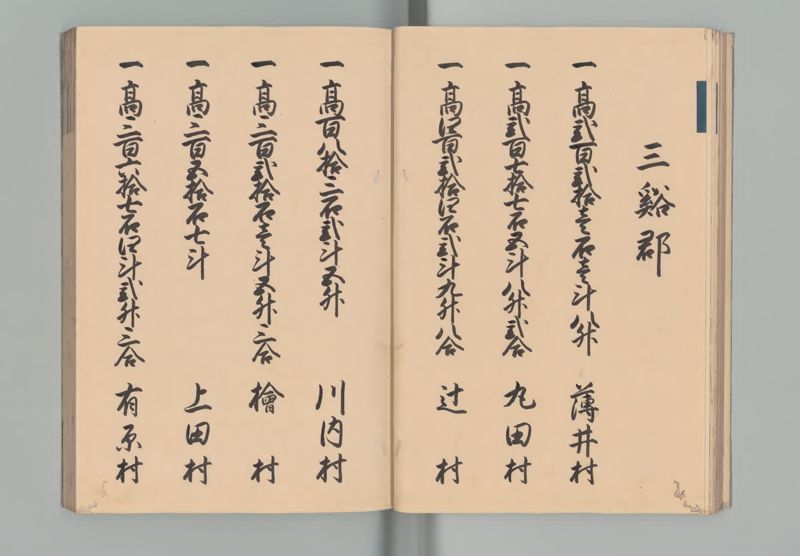 三谿郡
一高弐百弐拾壱石壱斗八升 薄井村
一高弐百七拾七石五斗八升弐合 丸田村
一高四百弐拾四石弐斗九升八合 辻村
一高百八拾三石弐斗五升 川内村
一高三百弐拾石壱斗五升三合 檜村
一高三百五拾石七斗 上田村
一高三百六拾七石四斗弐升三合 有原村